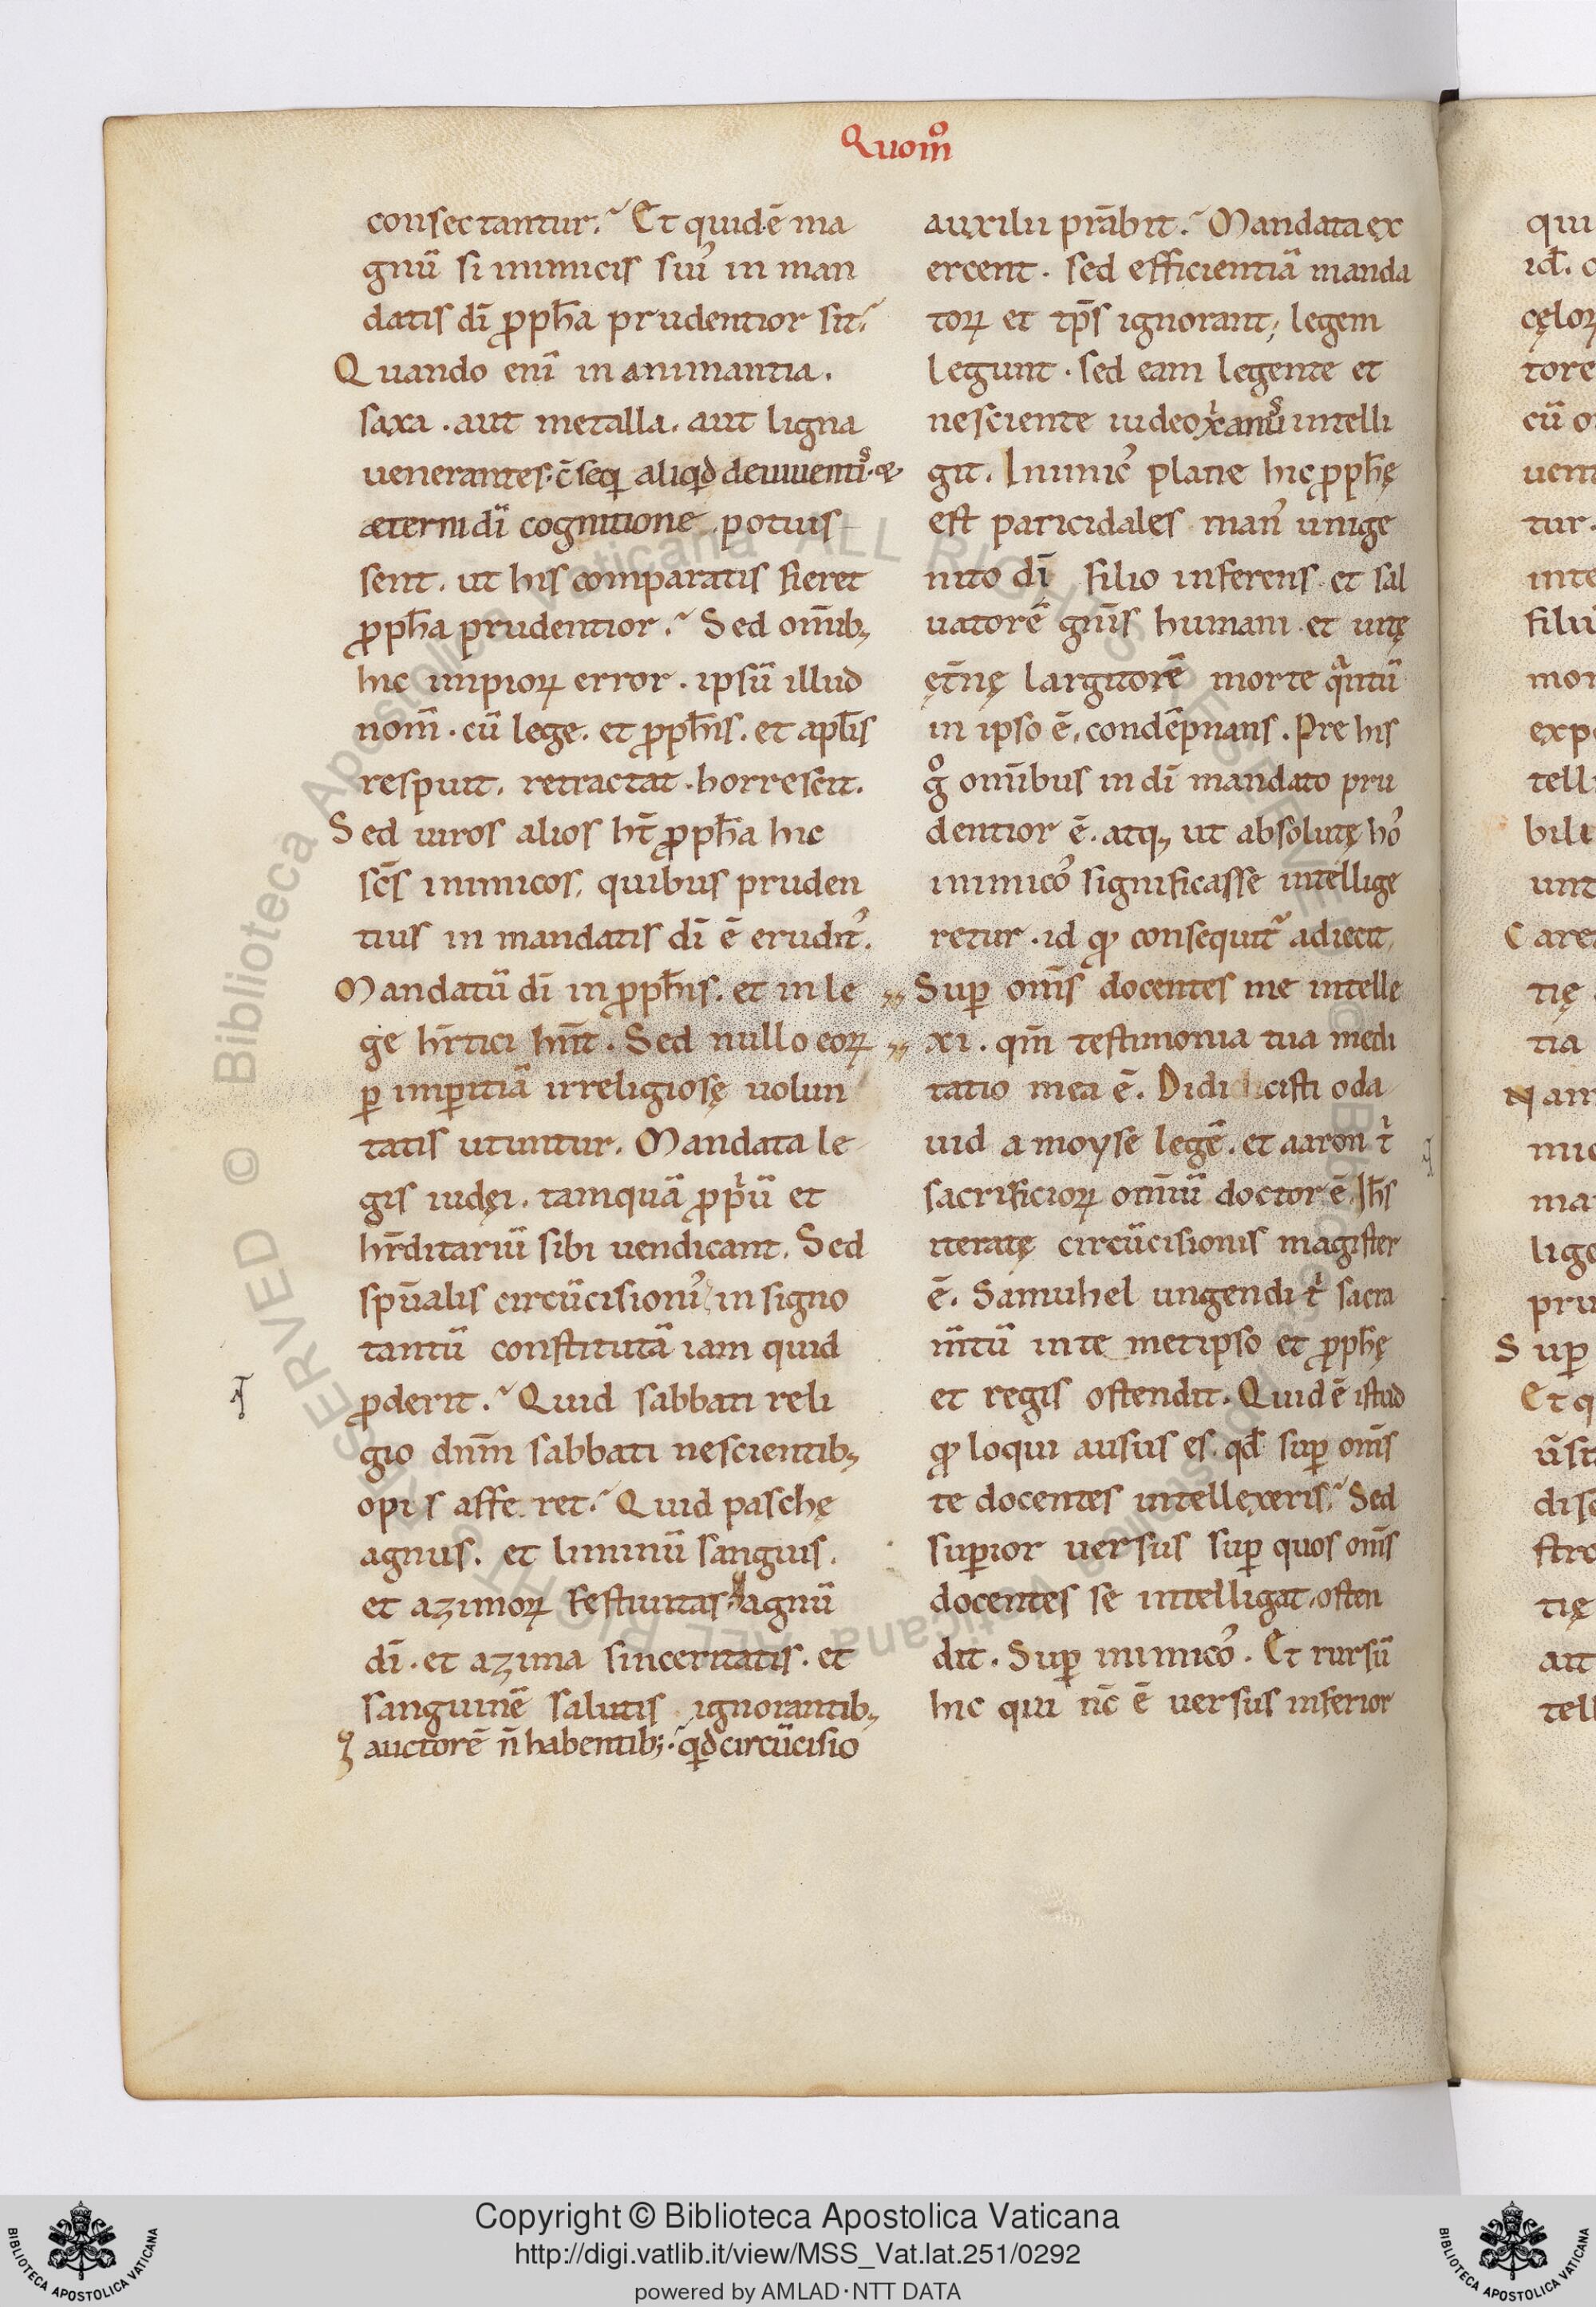 Quom̄o
consectantur. Et quidē ma
gnū si inimicis suis in man
datis dī ꝓph̄a prudentior sit.
Quando enī in animantia.
saxa . aut metalla . aut ligna
uenerantes . c̄seq aliqd de uiuentis . æ
æterni dī cognitione potuis
sent . ut his comparatis fieret
ꝓph̄a prudentior. Sed om̄ib;
hic impioꝝ error . ipsū illud
nom̄ . cū lege . et ꝓph̄is . et apl̄is
respuit . retractat . horrescit.
Sed uiros alios ht̄ ꝓph̄a hic
sc̄s inimicos, quibus pruden
tius in mandatis dī ē eruditꝰ.
Mandatū dī in ꝓph̄is . et in le
ge hr̄tici hn̄t . Sed nullo eoꝝ
ꝑ imꝑitiā irreligiosę uolun
tatis utuntur . Mandata le
gis iudęi . tamquā ꝓpriū et
hr̄ditariū sibi uendicant . Sed
sp̄ualis circūcisionꝰ in signo
tantū constitutā iam quid
ꝓderit. Quid sabbati reli
gio dn̄m sabbati nescientib;
opis afferret. Quid paschę
agnus . et liminū sanguis .
et azimoꝝ festiuitas agnū
dī . et azima sinceritatis . et
sanguinē salutis ignorantib;
auctorē n̄ habentib; . qd circūcisio
auxilii prābit. Mandata ex
ercent . sed efficientiā manda
toꝝ et tp̄s ignorant, legem
legunt . sed eam legente et
nesciente iudeo xp̄ianus intelli
git . Inimicꝰ plane hic ꝓph̄ę
est paricidales manꝰ unige
nito dī filio inferens . et sal
uatorē gn̄is humani . et uitę
ęt̄nę largitorē morte qntū
in ipso ē, condēpnans . Pre his
g̊ om̄ibus in dī mandato pru
dentior ē . atq; ut absolutę hoꝰ
inimicoꝰ significasse intellige
retur . id qđ consequitr̃ adiecit,
Suꝑ om̄s docentes me intelle
xi . qm̄ testimonia tua medi
tatio mea ē . Didicisti o da
uid a moyse legē . et aaron t'
sacrificioꝝ om̄iū doctor ē . Ih̄s
iteratę circūcisionis magister
ē. Samuhel ungendi t' sacra
m̄tū in te metipso et ꝓph̄ę
et regis ostendit . Quid ē istud
qđ loqui ausus es . qđ suꝑ om̄s
te docentes intellexeris. Sed
suꝑior uersus suꝑ quos om̄s
docentes se intelligat, osten
dit . Suꝑ inimicoꝰ . Et rursū
hic qui nc̄ ē uersus inferior
Copyright © Biblioteca Apostolica Vaticana
http://digi.vatlib.it/view/MSS_Vat.lat.251/0292
powered by AMLAD·NTT DATA
BIBLIOTECA APOSTOLICA VATICANA
BIBLIOTECA APOSTOLICA VATICANA